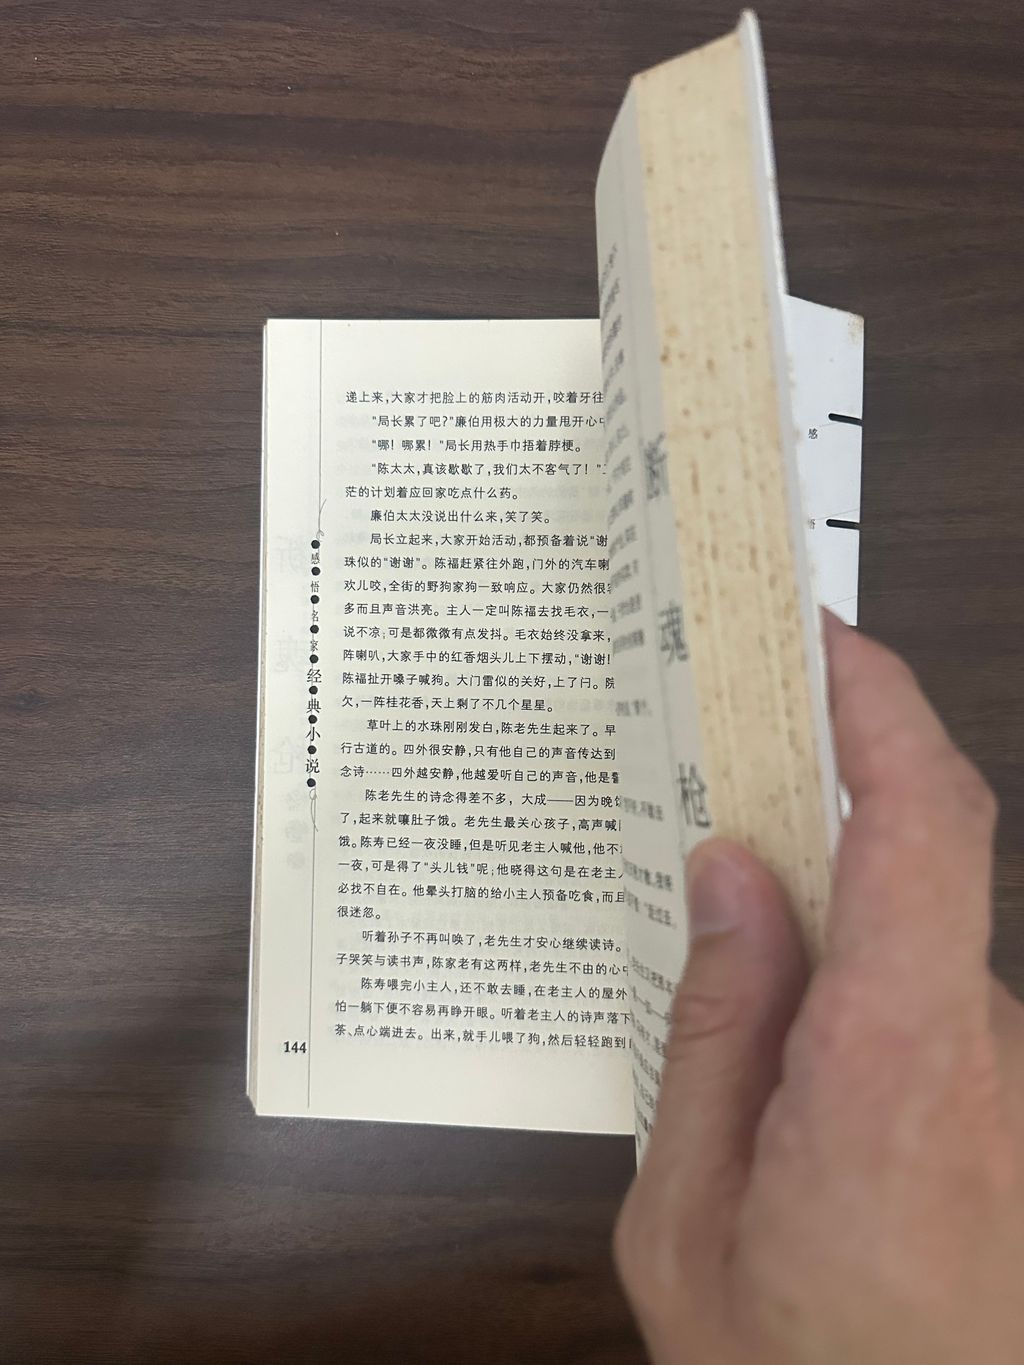 递上来,大家才把脸上的筋肉活动开,咬着牙往
“局长累了吧?”廉伯用极大的力量甩开心中
“哪! 哪累! ”局长用热手巾捂着脖梗。
“陈太太,真该歇歇了,我们太不客气了! ”
茫的计划着应回家吃点什么药。
廉伯太太没说出什么来,笑了笑。
局长立起来,大家开始活动,都预备着说“谢
珠似的“谢谢”。陈福赶紧往外跑,门外的汽车喇
欢儿咬,全街的野狗家狗一致响应。大家仍然很
多而且声音洪亮。主人一定叫陈福去找毛衣,一
说不凉;可是都微微有点发抖。毛衣始终没拿来,
阵喇叭,大家手中的红香烟头儿上下摆动,“谢谢!
陈福扯开嗓子喊狗。大门雷似的关好,上了闩。院
欠,一阵桂花香,天上剩了不几个星星。
草叶上的水珠刚刚发白,陈老先生起来了。早
行古道的。四外很安静,只有他自己的声音传达到
念诗……四外越安静,他越爱听自己的声音,他是
陈老先生的诗念得差不多，大成——因为晚饭
了,起来就嚷肚子饿。老先生最关心孩子,高声喊
饿。陈寿已经一夜没睡,但是听见老主人喊他,他不
一夜,可是得了“头儿钱”呢;他晓得这句是在老主
必找不自在。他晕头打脑的给小主人预备吃食,而且
很迷忽。
听着孙子不再叫唤了,老先生才安心继续读诗。
子哭笑与读书声,陈家老有这两样,老先生不由的心中
陈寿喂完小主人,还不敢去睡,在老主人的屋外
怕一躺下便不容易再睁开眼。听着老主人的诗声落下
茶、点心端进去。出来,就手儿喂了狗,然后轻轻跑到
144
感悟名家经典小说
断魂枪
感
悟